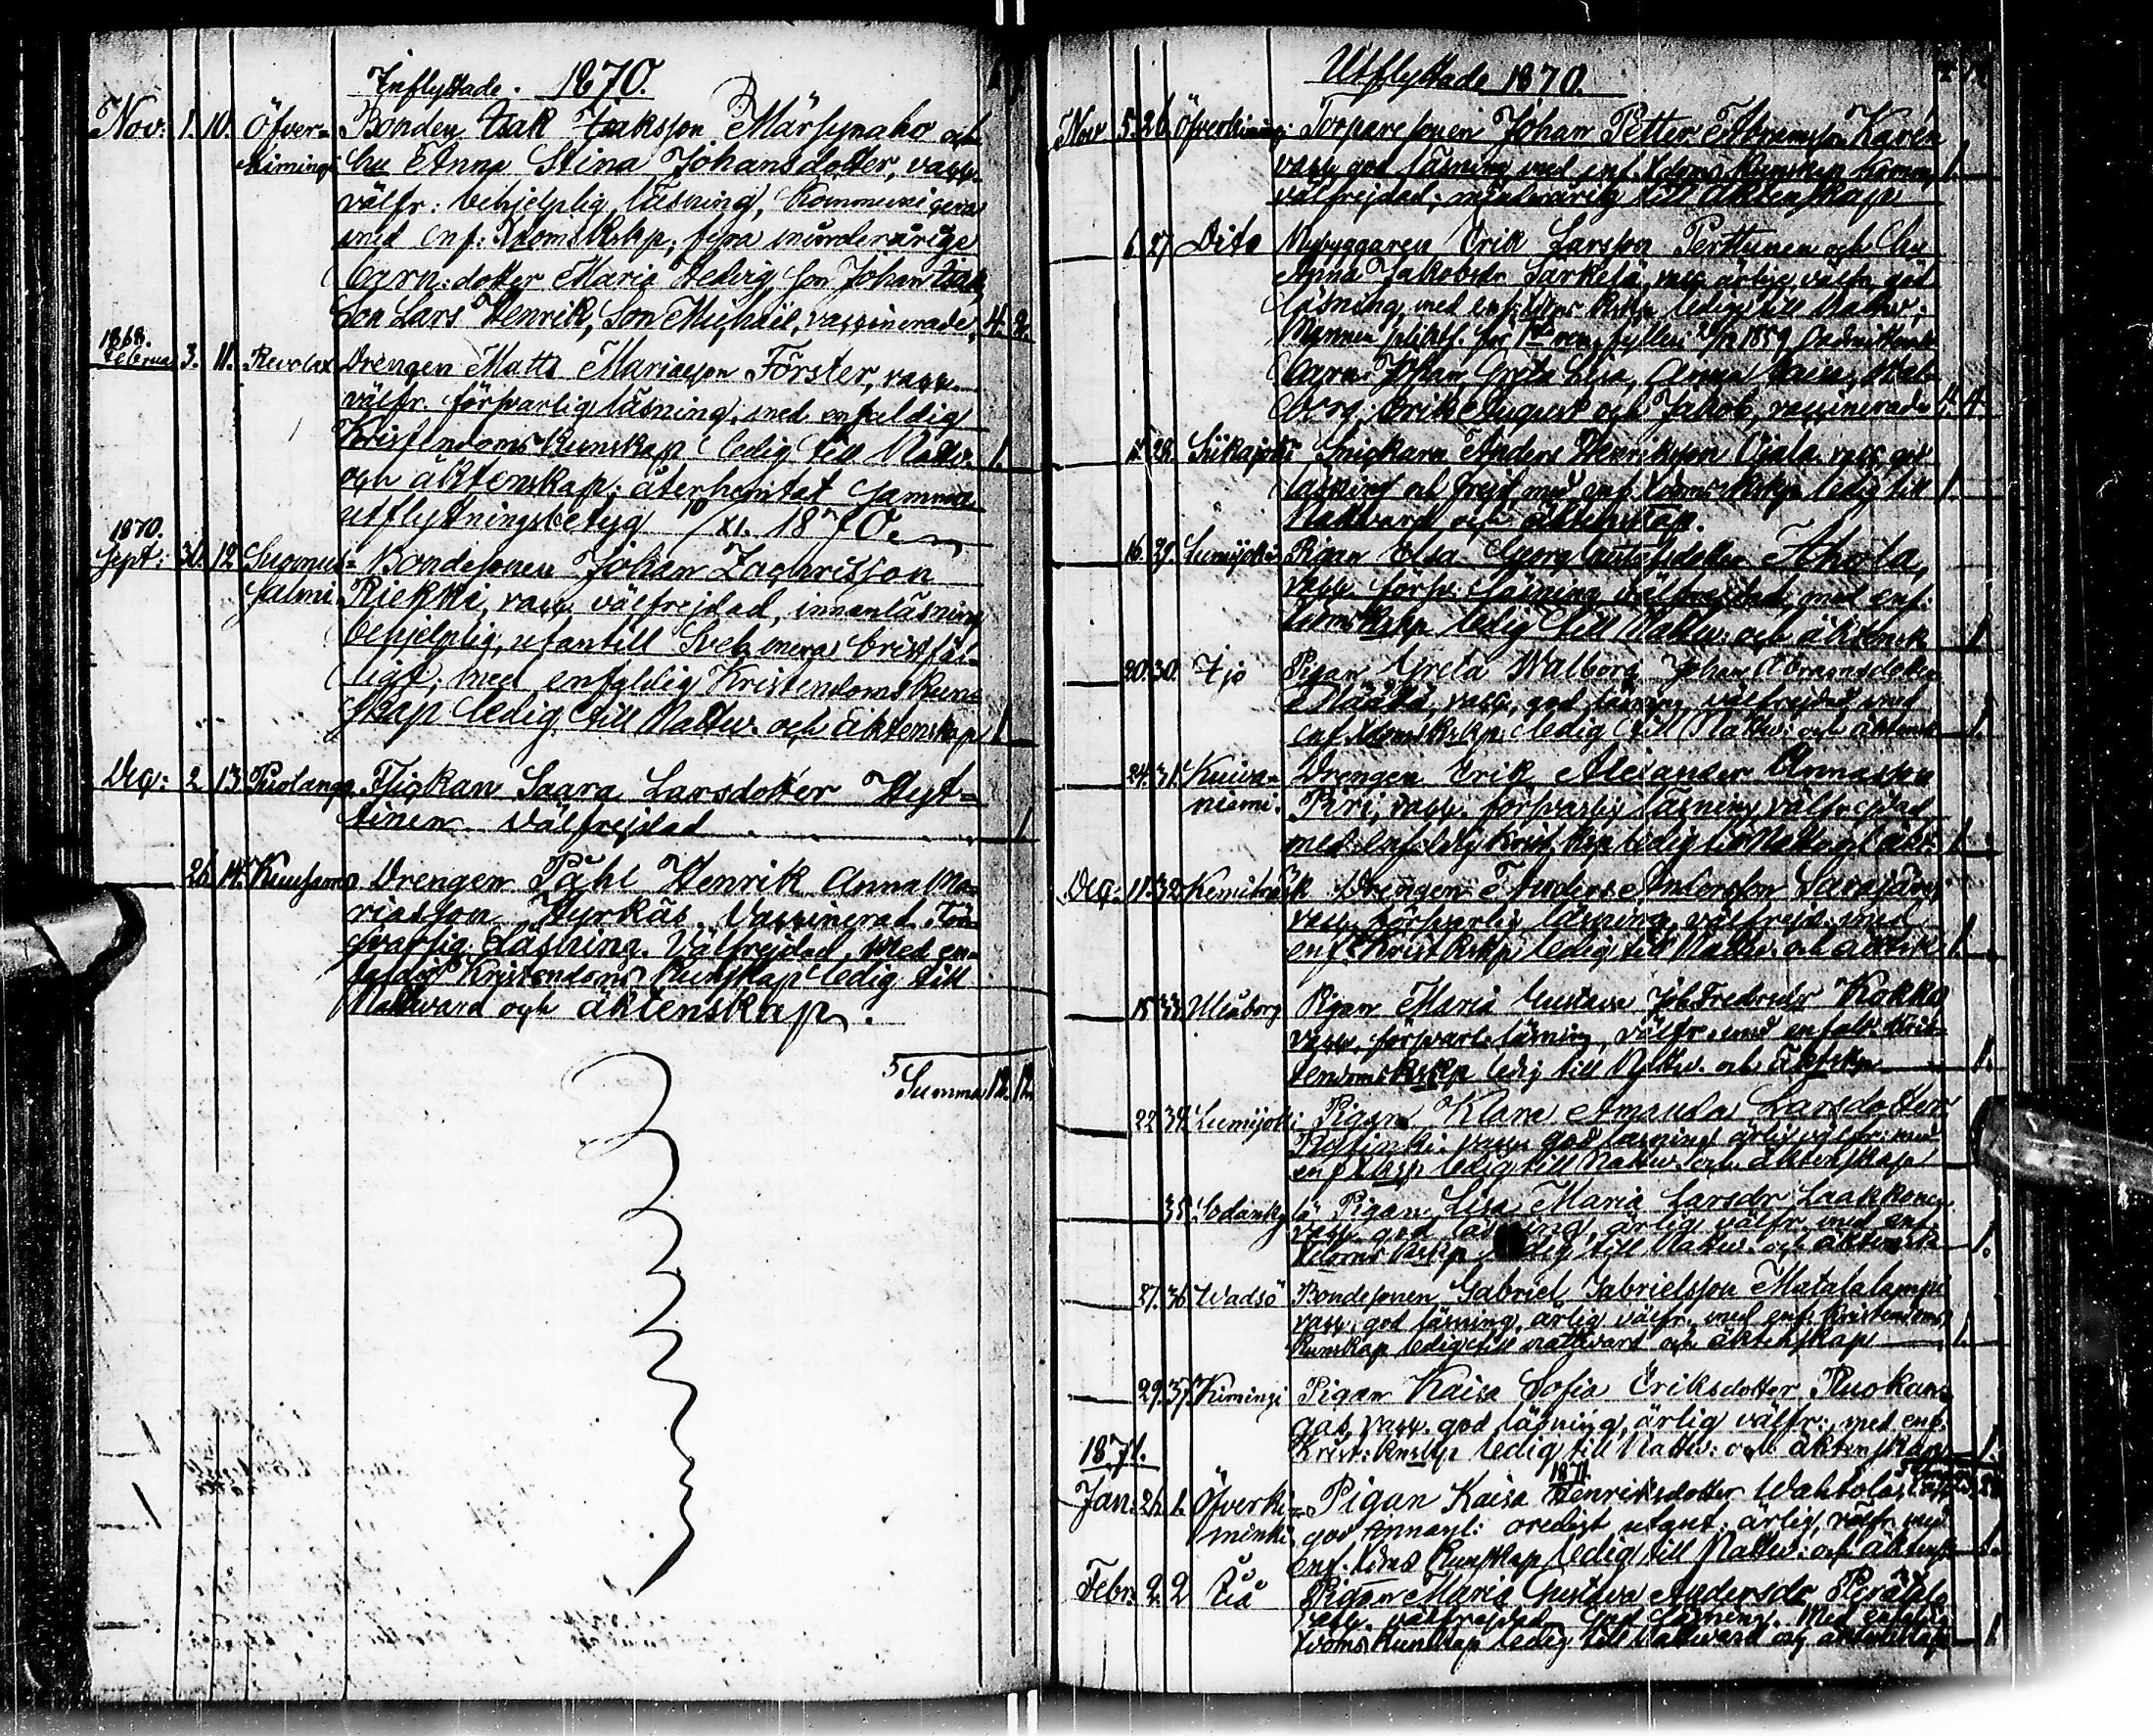 Inflyttade. 1870.
Nov: 1. 10. Öfver- Bonden Isak Isaksson Märsynaho och
kiminge hu Anna Stina Johansdotter, vacc.
välfr: behjelplig läsning, Kommunicera
med enf: Xdoms kskp, fyra minderårige
barn: dotter Maria Hedvig, son Johan Isak,
Son Lars Henrik, Son Michael, vaccinerade, 4. 2.
1868.
Februa 3. 11. Revolax Drengen Matts Mariasson Förster, vacc.
välfr. försvarlig läsning, med enfaldig
Kristendoms kunskap ledig till Nattv. 1.
och äktenskap; återhemtat samma
utflyttningsbetyg 10/XI. 1870.
1870.
Sept: 30. 12 Suomus- Bondesonen Johan Zachrisson
salmi Riekki, vacc. välfrejdad, innanläsning
behjelplig, utantill bristfäl-
ligt; med enfaldig Kristendoms kun-
skap ledig till Nattv. och äktenskap 1
Dec: 2 13 Puolango Flickan Saara Larsdotter Hyt-
tinen välfrejdad 1
26 14. Kuusamo Drengen Påhl Henrik Anna Ma-
riasson Hyrkäs. Vaccinerad. För-
svarlig läsning. Välfrejdad. Med en-
faldig Kristendoms kunskap ledig till
Nattvard och äktenskap.
Summa 12. 12.
Utflyttade 1870.
Nov 5. 26. Öfverkiminge Torparesonen Johan Petter Abramsson Karén
vacc god läsning med enf. Xdoms kunskap komm. 1.
välfrejdad; minderårig till äktenskap
6. 27 Dito Nybyggaren Erik Larsson Perttunen och hu
Anna Jakobsdr Sarkelä, vacc ärlige, välfr. god
läsning, med enf: Xdms kskp ledige till Nattv;
Mannen pliktf. för 1sta fylleri 1859
barn: Johan, Greta Lisa, Anna Kaisa, Wal-
borg, Erik August och Jakob, vaccinerade 4. 4.
28. Siikajoki Snickaren Anders Henriksson Ojala vacc god
läsning och frejd med enf. Xdoms kskp ledig till 1.
Nattvard och äktenskap.
16. 29. Lumijoki Pigan Elsa Georg Gustafsdotter Ahola,
vacc. försv: läsning välfrejdad, med enf:
Xdoms kskp ledig till Nattv: och äktensk 1.
20. 30. Ijo Pigan Greta Walborg Johan Abramsdotter
Määttä, vacc, god läsning, välfrejdad med
enf. Xdoms kskp: ledig till Nattv: och äktensk 1.
24. 31. Kuiva- Drengen Erik Alexander Annasson
niemi. Piri, vacc. försvarlig läsning välfrejdad
med enfaldig Krist. kskp ledig till Nattv och äkt: 1.
Dec: 11. 32 Kemiträsk Drengen Anders Andersson Sarajärvi
vacc försvarlig läsning, välfrejd: med
enf. Krist kskp ledig till Nattv. och äktsk 1.
18 33 Uleåborg Pigan Maria Gustava Joh. Fredrsdr Kokko
vacc. försvarl. läsning, välfr. med enfald. Kris-
tendoms kskp ledig till Nattv. och äktskp 1.
22 34. Lumijoki Pigan Klara Amanda Larsdotter
vacc god läsning ärlig välfr: med
enf kskp ledig till Nattv. och äktenskap
35. Sodankylä Pigan Lisa Maria Larsdr Laakkonen
vacc. god läsning, ärlig välfr. med enf.
Xdoms kskp ledig till Nattv. och äktensk 1.
27. 36 Wadsö Bondesonen Gabriel Gabrielsson Matalalampi
vacc. god läsning, ärlig välfr. med enf: Kristendoms
kunskap ledig till nattvard och äktenskap 1.
29. 37. Kiminge Pigan Kaisa Sofia Eriksdotter Ruokan-
gas, vacc. god läsning, ärlig välfr: med enf:
Krist: knskp ledig till Nattv: och äktenskap 1.
1871. 1871.
Jan: 26. 1. Öfverki- Pigan Kaisa Henriksdotter Wahtola,
minki god innanl: ärlig, välfr. med
enf. Xdms kunskap ledig till Nattv: och äktensk 1.
Febr: 2. 2 Uå Pigan Maria Gustava Andersdr Perälä
vacc. välfrejdad god läsning. Med enfaldig
Xdoms kunskap ledig till Nattvard och äktenskap 1.